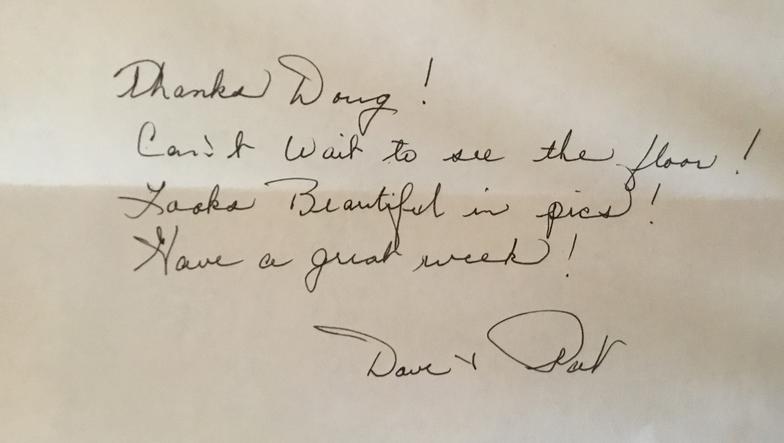 Thanks Doug!
Can't Wait to see the floor!
Looks Beautiful in pics!
Have a great week!
Dave + Pat